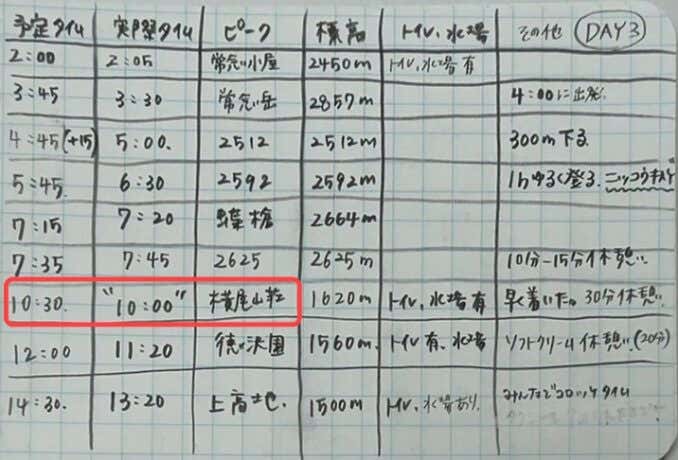 予定タイム 実際タイム ピーク 標高 トイレ、水場 その他 DAY3
2:00 2:05 常念小屋 2450m トイレ、水場有
3:45 3:30 常念岳 2857m 4:00に出発。
4:45(+15) 5:00. 2512 2512m 300m下る
5:45. 6:30 2592 2592m 1hゆるく登る. ニッコウキスゲ
7:15 7:20 蝶槍 2664m
7:35 7:45 2625 2625m 10分-15分休憩。
10:30. "10:00" 横尾山荘 1620m トイレ、水場有 早く着いた。30分休憩。
12:00 11:20 徳沢園 1560m. トイレ有、水場 ソフトクリーム休憩。(20分)
14:30. 13:20 上高地. 1500m トイレ、水場あり. みんなでコロッケタイム